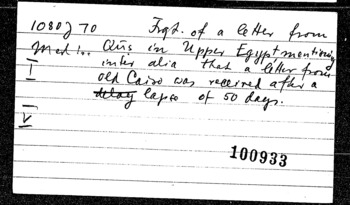 1080 J 70 Frgt. of a letter from
Med. Qūṣ in Upper Egypt mentioning
I inter alia that a letter from
old Cairo was received after a
delay lapse of 50 days.
V
100933